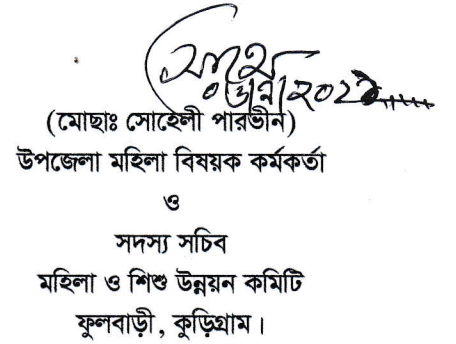 (মোছাঃ সোহেলী পারভীন)
উপজেলা মহিলা বিষয়ক কর্মকর্তা
ও
সদস্য সচিব
মহিলা ও শিশু উন্নয়ন কমিটি
ফুলবাড়ী, কুড়িগ্রাম।